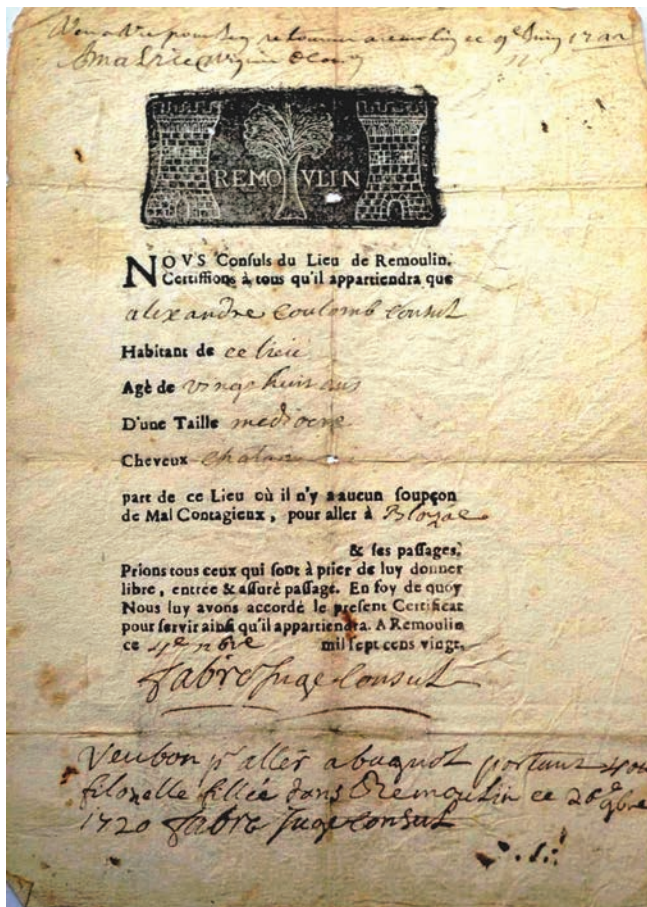 pour retourner a remoulin ce 9e 
REMO VLIN
NOVS Conſuls du Lieu de Remoulin.
Certiffions à tous qu'il appartiendra que
alexandre Coulomb Consul
Habitant de ce lieu
Agé de vingt huit ans
D'une Taille mediocre
Cheveux chatan
part de ce Lieu où il n'y a aucun ſoupçon
de Mal Contagieux, pour aller à Blozac
& ſes paſſages.
Prions tous ceux qui ſont à prier de luy donner
libre, entrée & aſſuré paſſage. En foy de quoy
Nous luy avons accordé le preſent Certificat
pour ſervir ainſi qu'il appartiendra. A Remoulin
ce 4e nbre mil ſept cens vingt.
fabre Juge Consul
Veu bon pr aller a bagnol portant
filozelle fillée dans Remoulin ce 26e 9bre
1720 fabre Juge Consul